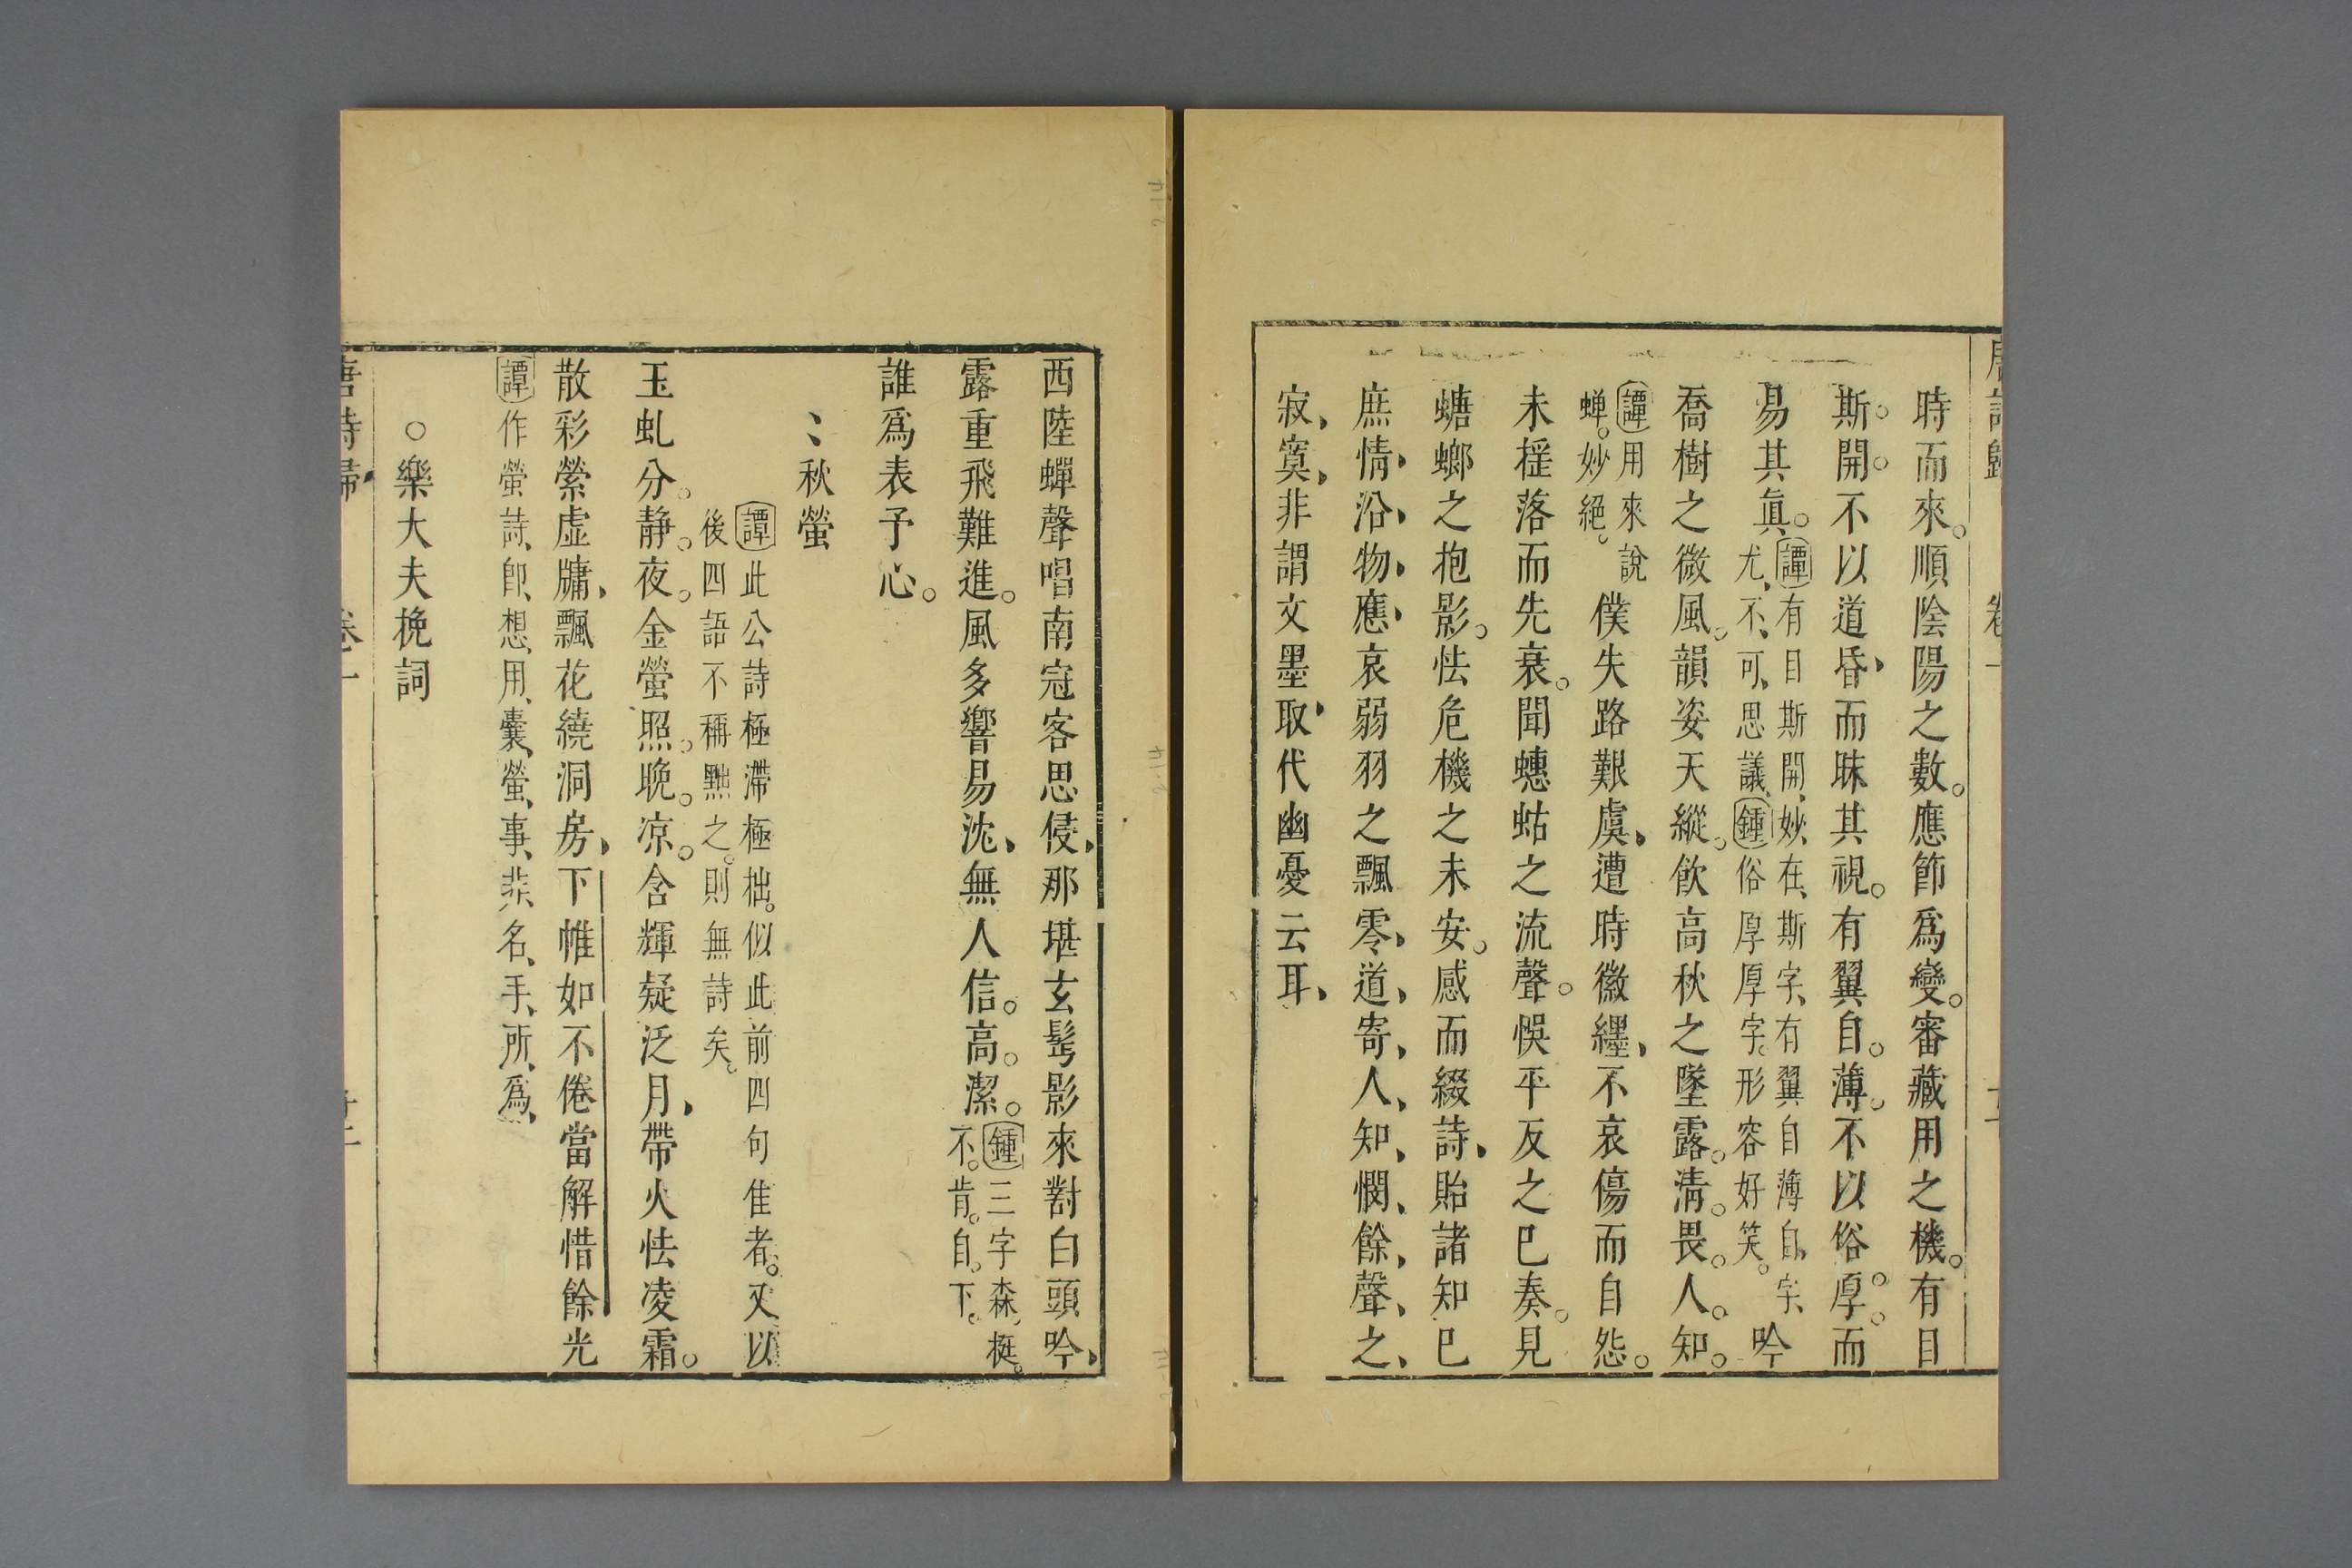 時而來。順陰陽之數。應節爲變。審藏用之機。有目
斯。開。不以道昏、而昧其視。有翼自。薄。不以俗厚。而
易其眞。
譚有目斯開、妙在、斯字、有翼自薄自、字、
尤、不、可、思議、鍾俗厚厚字。形容好笑。
吟
喬樹之微風。韻姿天縱。飲高秋之墜露。清。畏。人。知。
譚用來說
蟬。妙絕。
僕失路艱虞、遭時徽纆、不哀傷而自怨。
未榣落而先衰。聞蟪蛄之流聲。悞平反之巳奏。見
螗螂之抱影。怯危機之未安。感而綴詩、貽諸知巳
庶情、沿、物、應、哀弱羽之飄零、道、寄、人、知、憫、餘、聲、之、
寂、寞、非謂文墨、取代幽憂云耳、
西陸蟬聲唱南冠客思侵、那堪玄髩影來對白頭吟、
露重飛難進。風多響易沈、無人信。高。潔。
鍾三字森。挺。
不。肯。自。下。
誰爲表予心。
、、秋螢
譚此公詩極滯極拙。似此前四句隹者。又以
後四語不稱黜之。則無詩矣。
玉虬分。静。夜。金螢照。晚。凉。含輝疑泛月、帶火怯凌霜。
散彩縈虛牗、飄花繞洞房、下帷如不倦當解惜餘光
譚作螢詩、卽、想、用、囊、螢、事、非、名、手、所、爲、
○樂大夫挽詞
唐詩歸 卷一